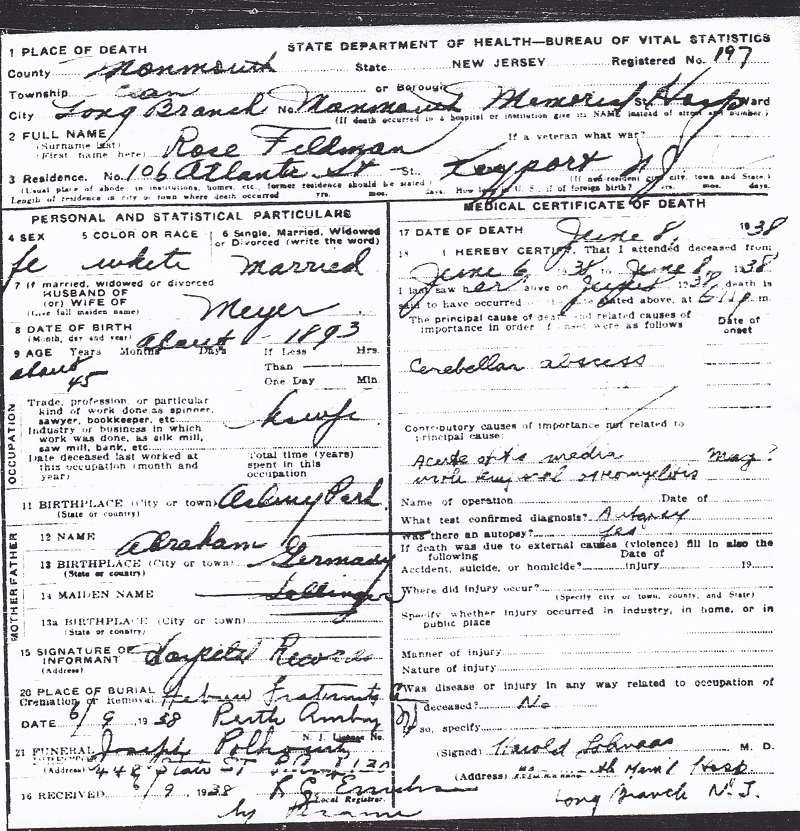 1 PLACE OF DEATH
STATE DEPARTMENT OF HEALTH—BUREAU OF VITAL STATISTICS
County Monmouth State NEW JERSEY Registered No. 197
Township or Borough
City Long Branch No. Monmouth Memorial Hosp St. Ward
(If death occurred in a hospital or institution give its NAME instead of street and number.)
2 FULL NAME Rose Feldman If a veteran what war?
(Surname last)
(First name here)
3 Residence. No. 106 Atlantic St St. Keyport NJ
(Usual place of abode; in institutions, homes, etc., former residence should be stated) (If non-resident give city, town and State)
Length of residence in city or town where death occurred yrs. mos. days. How long in U. S., if of foreign birth? yrs. mos. days.
PERSONAL AND STATISTICAL PARTICULARS
4 SEX 5 COLOR OR RACE 6 Single, Married, Widowed or Divorced (write the word)
fe white Married
7 If married, widowed or divorced
HUSBAND OF
(or) WIFE OF Meyer
(Give full maiden name)
8 DATE OF BIRTH about 1893
(Month, day and year)
9 AGE Years Months Days If Less Than One Day Hrs. Min
about 45
OCCUPATION
Trade, profession, or particular kind of work done as spinner, sawyer, bookkeeper, etc. hswfe
Industry or business in which work was done, as silk mill, saw mill, bank, etc.
Date deceased last worked at this occupation (month and year)
Total time (years) spent in this occupation
11 BIRTHPLACE (City or town) Asbury Park
(State or country)
FATHER
12 NAME Abraham
13 BIRTHPLACE (City or town) Germany
(State or country)
MOTHER
14 MAIDEN NAME
13a BIRTHPLACE (City or town)
(State or country)
15 SIGNATURE OF INFORMANT Hospital Records
(Address)
20 PLACE OF BURIAL Hebrew Fraternity
Cremation or Removal
DATE 6/9 1938 Perth Amboy
N. J. License No.
21 FUNERAL Joseph
(Address) 448 State ST
16 RECEIVED 6/9 1938
Local Registrar.
by
MEDICAL CERTIFICATE OF DEATH
17 DATE OF DEATH June 8 1938
18 I HEREBY CERTIFY, That I attended deceased from
June 6 1938 to June 8, 1938
I last saw her alive on June 8 1938, death is
said to have occurred on the date stated above, at 6:11 p.m.
The principal cause of death and related causes of importance in order of onset were as follows
Date of onset
Cerebellar abscess
Contributory causes of importance not related to principal cause:
Acute otitis media May?
Name of operation Date of
What test confirmed diagnosis? Autopsy
Was there an autopsy? yes
If death was due to external causes (violence) fill in also the following
Date of
Accident, suicide, or homicide? injury 19
Where did injury occur?
(Specify city or town, county, and State)
Specify whether injury occurred in industry, in home, or in public place
Manner of injury
Nature of injury
Was disease or injury in any way related to occupation of deceased? No
If so, specify
(Signed) Harold M. D.
(Address) Mem'l Hosp
Long Branch N. J.